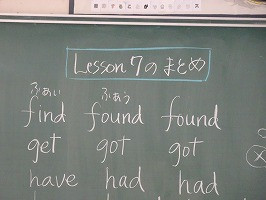 Lesson 7のまとめ
ふぁい ふぁう
find found found
get got got
have had had